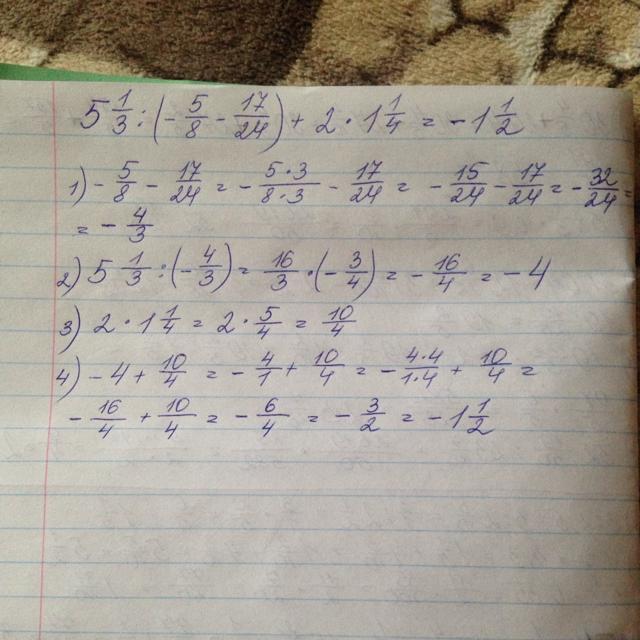 5 1/3 : (- 5/8 - 17/24) + 2 · 1 1/4 = - 1 1/2
1) - 5/8 - 17/24 = - 5·3/8·3 - 17/24 = - 15/24 - 17/24 = - 32/24 =
= - 4/3
2) 5 1/3 : (- 4/3) = 16/3 · (- 3/4) = - 16/4 = - 4
3) 2 · 1 1/4 = 2 · 5/4 = 10/4
4) - 4 + 10/4 = - 4/1 + 10/4 = - 4·4/1·4 + 10/4 =
- 16/4 + 10/4 = - 6/4 = - 3/2 = - 1 1/2